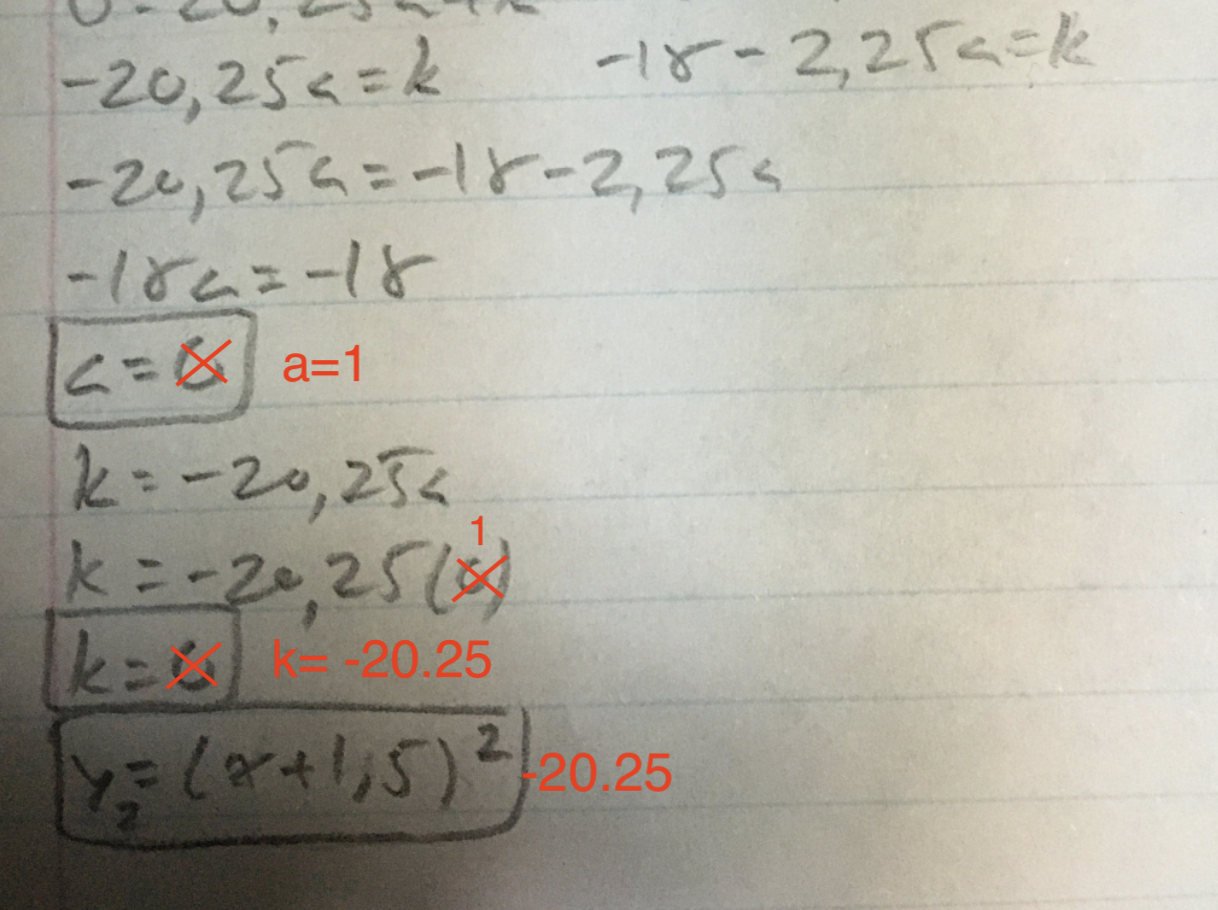 -20,25a=k -18-2,25a=k
-20,25a=-18-2,25a
-18a=-18
a=0 a=1
k=-20,25a
1
k=-20,25(0)
k=0 k= -20.25
y₂=(x+1,5)² -20.25